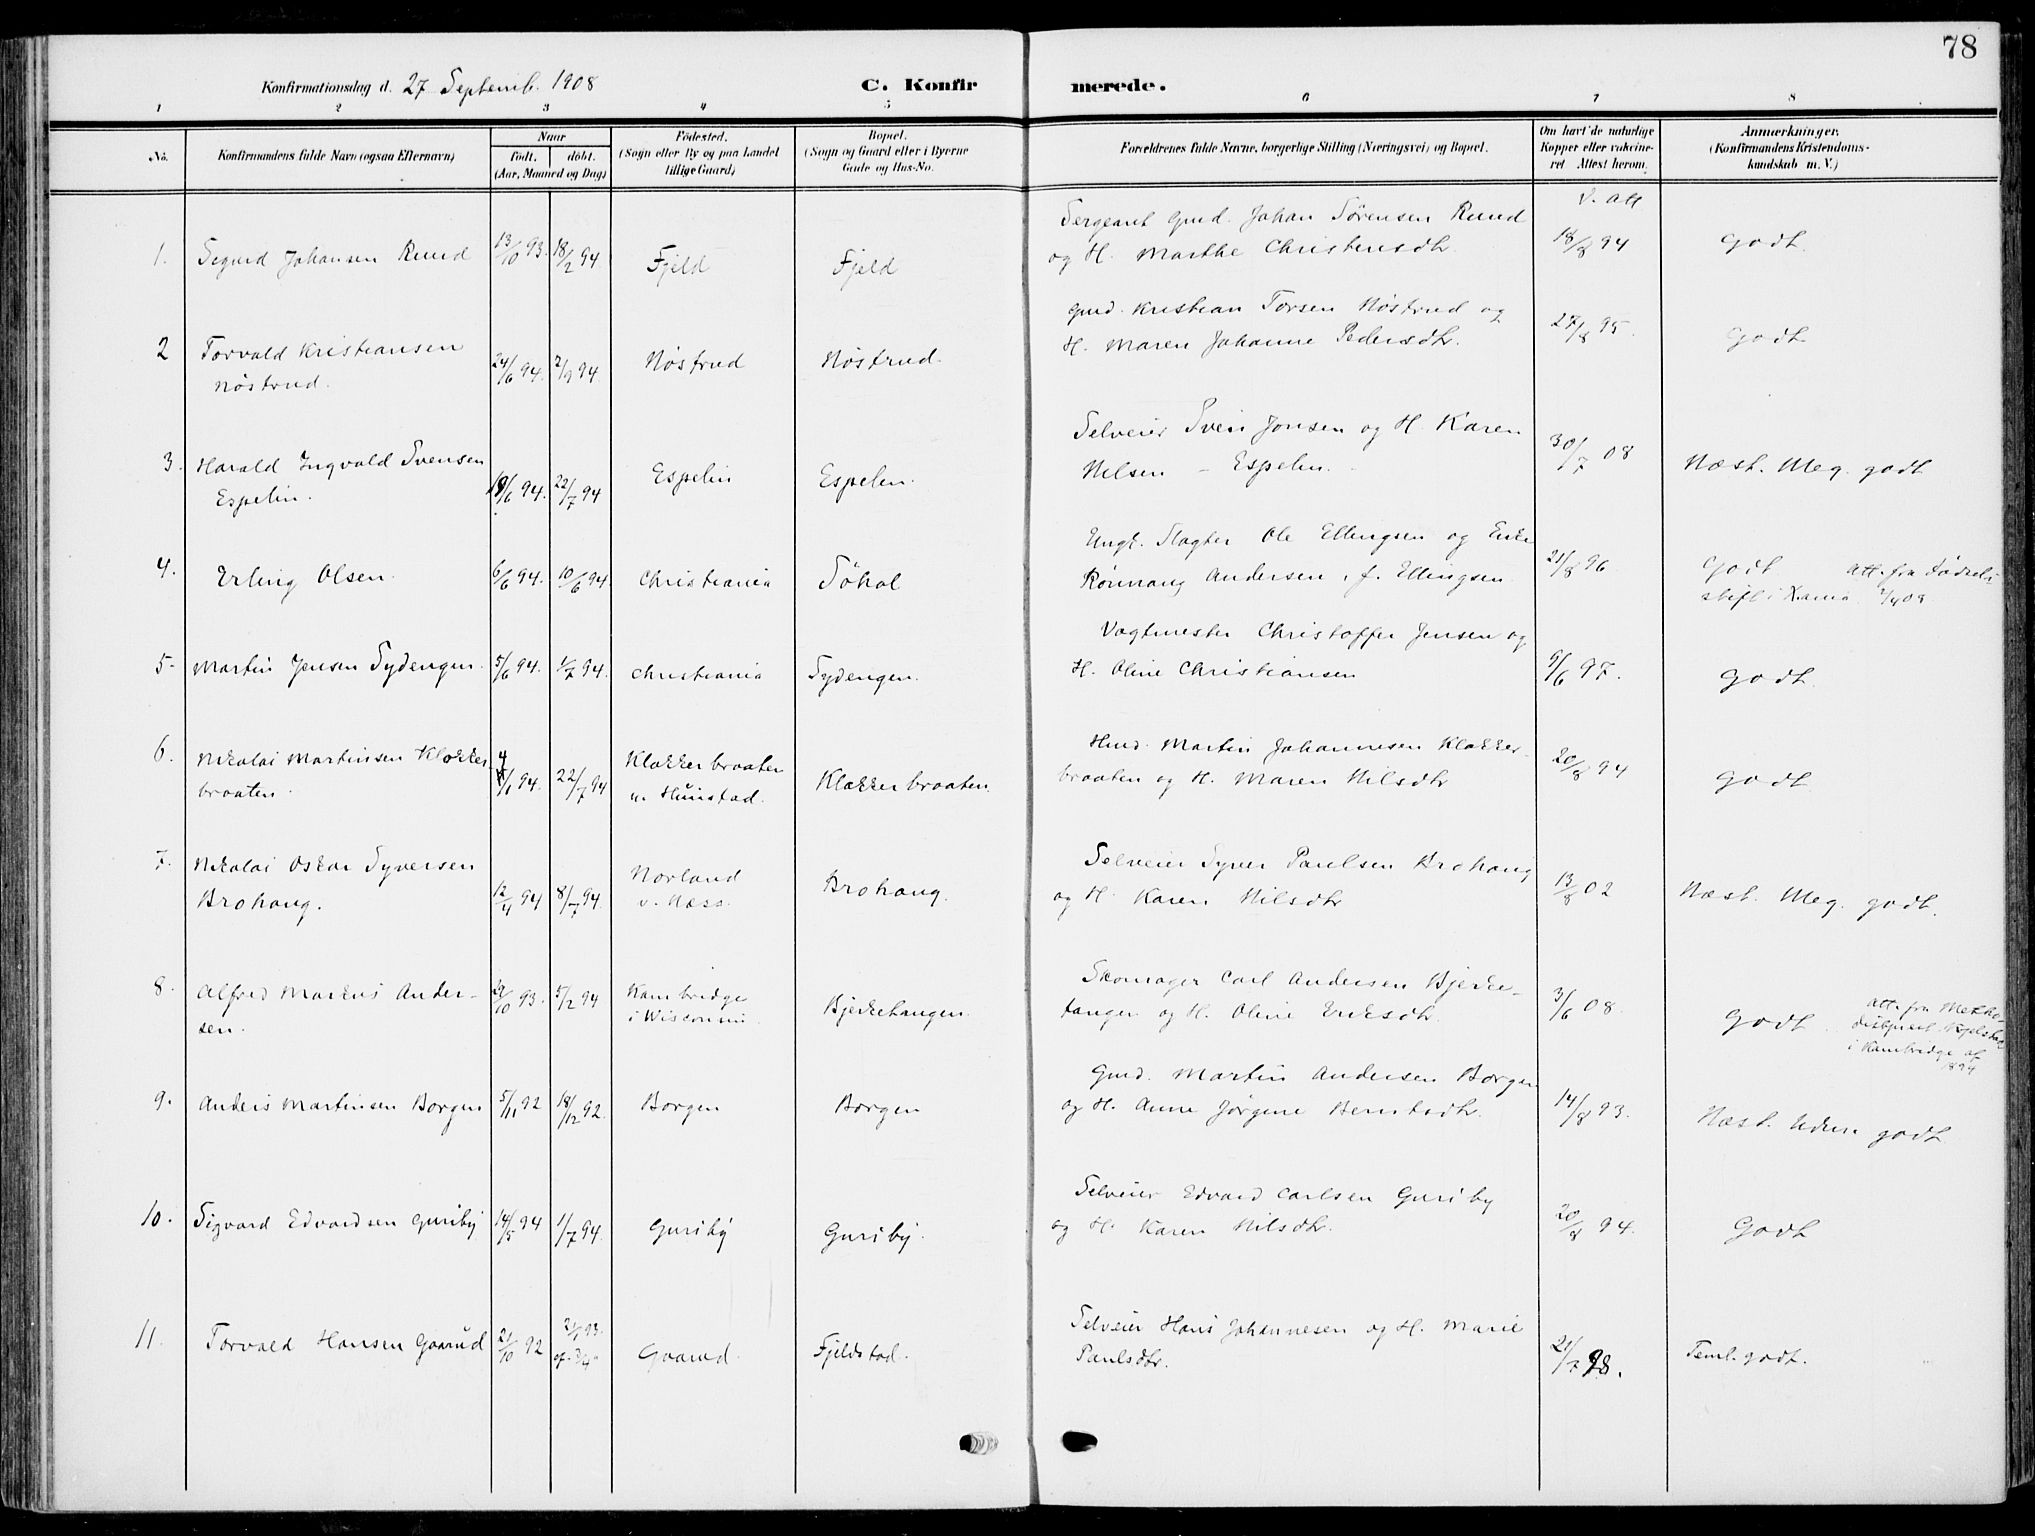 78
Konfirmationsdag d. 27 Septemb. 1908
C. Konfirmerede.
1 2 3 4 5 6 7 8
No.
Konfirmandens fulde Navn (ogsaa Efternavn)
Naar
født. døbt.
(Aar, Maaned og Dag)
Fødested.
(Sogn eller By og paa Landet
tillige Gaard)
Bopæl.
(Sogn og Gaard eller i Byerne
Gade og Hus-No.
Forældrenes fulde Navne, borgerlige Stilling (Næringsvei) og Bopæl.
Om havt de naturlige
Kopper eller vakcine-
ret Attest herom.
Anmærkninger.
(Konfirmandens Kristendoms-
kundskab m. V.)
V. att
Sergeant Gmd. Johan Sørensen Ruud
1. Sigurd Johansen Ruud 13/10 93. 18/2 94 Fjeld Fjeld og H. Marthe Christensdtr. 18/8 94 Godt.
Gmd. Kristian Torsen Nøstrud og
2 Torvald Kristiansen
Nøstrud. 24/6 94. 2/9 94. Nøstrud Nøstrud. H. Maren Johanne Pedersdtr. 27/8 95. Godt
Selveier Sven Jonsen og H. Karen
3. Harald Ingvald Svensen
Espelin. 19/6 94. 22/7 94 Espelin Espelen. Nilsen – Espelin. 30/7 08 Næst. Meg. godt
Ungk. Slagter Ole Ellingsen og Enke
4. Erling Olsen. 6/6 94. 10/6 94 Christiania Søhol Rønnaug Andersen, f. Ellingsen 21/8 96 Godt Att. fra Fødsels-
stift i Kania
Vagtmester Christoffer Jensen og
5. Martin Jensen Sydengen. 5/6 94. 1/7 94. Christiania Sydengen. H. Oline Christiansen 9/6 97. Godt.
Hmd. Martin Johannesen Klokker-
6. Nikolai Martinsen Klokker
braaten. 4/1 94. 22/7 94 Klokkerbraaten
u. Hunstad. Klokkerbraaten. braaten og H. Maren Nilsdtr 20/8 94 Godt
Selveier Syver Paulsen Brohaug
7. Nikolai Oskar Syversen
Brohaug. 12/4 94 8/7 94. Norland
v. Næss. Brohaug. og H. Karen Nilsdtr 13/8 02 Næst. Meg. godt.
Skomager Carl Andersen Bjerke-
8. Alfred Markus Ander-
sen. 22/10 93. 5/2 94 Kambridge
i Wisconsin. Bjerketangen. tangen og H. Oline Eriksdtr. 3/6 08. Godt. Att. fra Metho-
i Kambridge af
1894
Gmd. Martin Andersen Borgen
9. Anders Martinsen Borgen 5/11 92 18/12 92. Borgen Borgen og H. Anne Jørgine Berntsdtr. 14/8 93. Næst. Udm. godt.
Selveier Edvard Carlsen Guriby
10. Sigvard Edvardsen Guriby 14/5 94 1/7 94. Guriby Guriby. og H. Karen Nilsdtr. 20/8 94. Godt
Selveier Hans Johannesen og H. Marie
11. Torvald Hansen Gaarud 21/10 92 2/1 93. Gaarud. Fjeldstad. Paulsdtr. 21/7 98. Teml. godt.